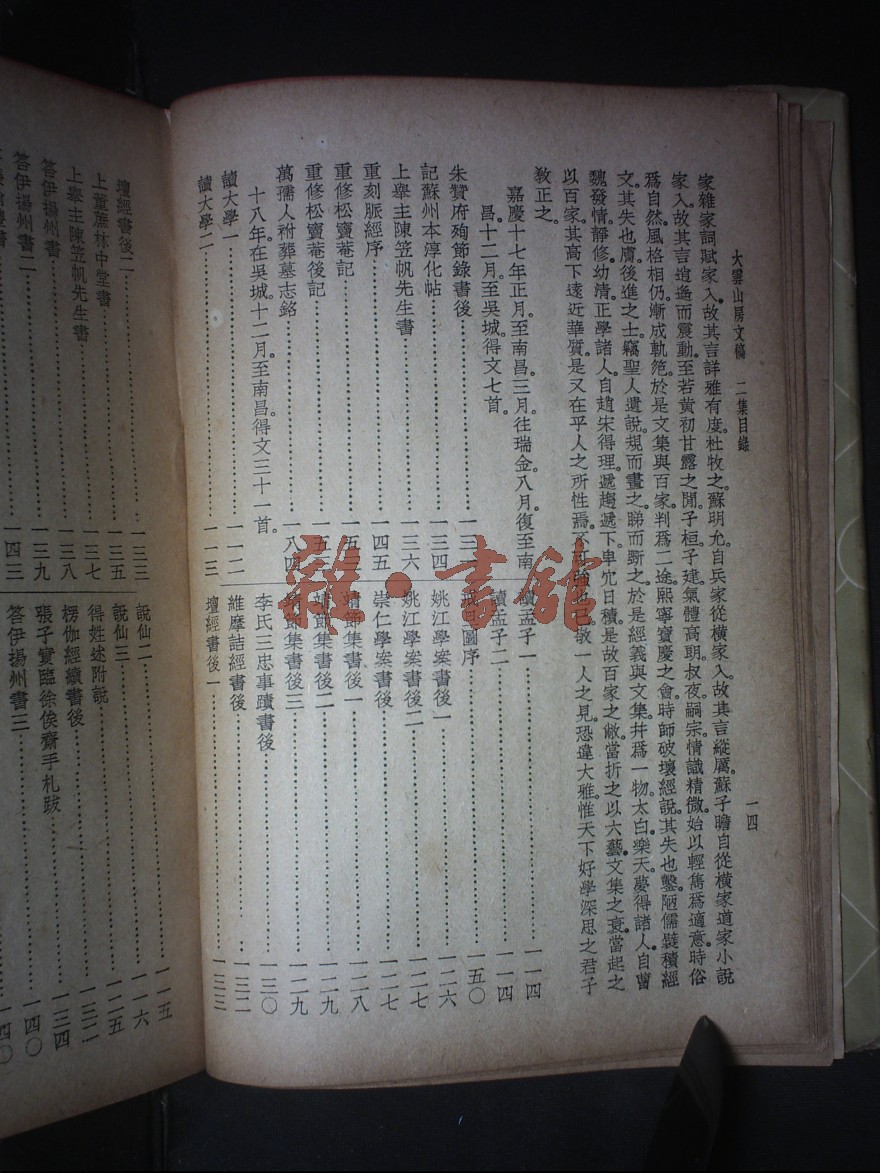 大雲山房文稿 二集目錄
一四
家雜家詞賦家入。故其言詳雅有度。杜牧之蘇明允。自兵家從橫家入。故其言縱厲。蘇子瞻自從橫家道家小說
家入。故其言逍遙而震動。至若黃初甘露之閒。子桓子建。氣體高朗。叔夜嗣宗。情識精微。始以輕雋爲適意。時俗
爲自然。風格相仍。漸成軌範。於是文集與百家判爲二途。熙寧寶慶之會。時師破壞經說。其失也鑿。陋儒襞積經
文。其失也膚。後進之士。竊聖人遺說。規而畫之。睇而斲之。於是經義與文集并爲一物。太白樂天夢得諸人。自曹
魏發情。靜修幼清正學諸人。自趙宋得理。遞趨遞下。卑宂日積。是故百家之敝。當折之以六藝。文集之衰。當起之
以百家。其高下遠近華質。是又在乎人之所性焉。不可強也已。敬一人之見。恐違大雅。惟天下好學深思之君子
敎正之。
嘉慶十七年正月。至南昌。三月往瑞金。八月復至南
昌。十二月。至吳城。得文七首。
朱贊府殉節錄書後
記蘇州本淳化帖 一三四
上舉主陳笠帆先生書 一三六
重刻脈經序 四五
重修松竇菴記
重修松竇菴後記 一五
萬孺人祔葬墓志銘 一八四
十八年。在吳城。十二月。至南昌。得文三十一首。
讀大學一 一一二
讀大學二 一一三
讀孟子一 一一四
讀孟子二 一一四
圖序 一五〇
姚江學案書後一 一二六
姚江學案書後二 一二七
崇仁學案書後 一二七
靖節集書後一 一二八
靖節集書後二 一二九
靖節集書後三 一二九
李氏三忠事蹟書後 一三〇
維摩詰經書後 一三二
壇經書後一 一三三
壇經書後二 一三三
上董蔗林中堂書 一三五
上舉主陳笠帆先生書 一三七
答伊揚州書一 一三八
答伊揚州書二 一三九
一四三
說仙二 一一五
說仙三 一一六
得姓述附說 一二五
楞伽經續書後 一三二
張子實臨徐俟齋手札跋 一三四
答伊揚州書三 一四〇
雜·書館